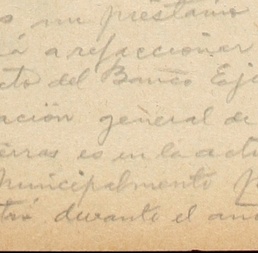 s un préstamo
rá a refaccionar
cto del Banco Eje
ación general de
erras es en la actu
Municipalmente p
tró durante el año